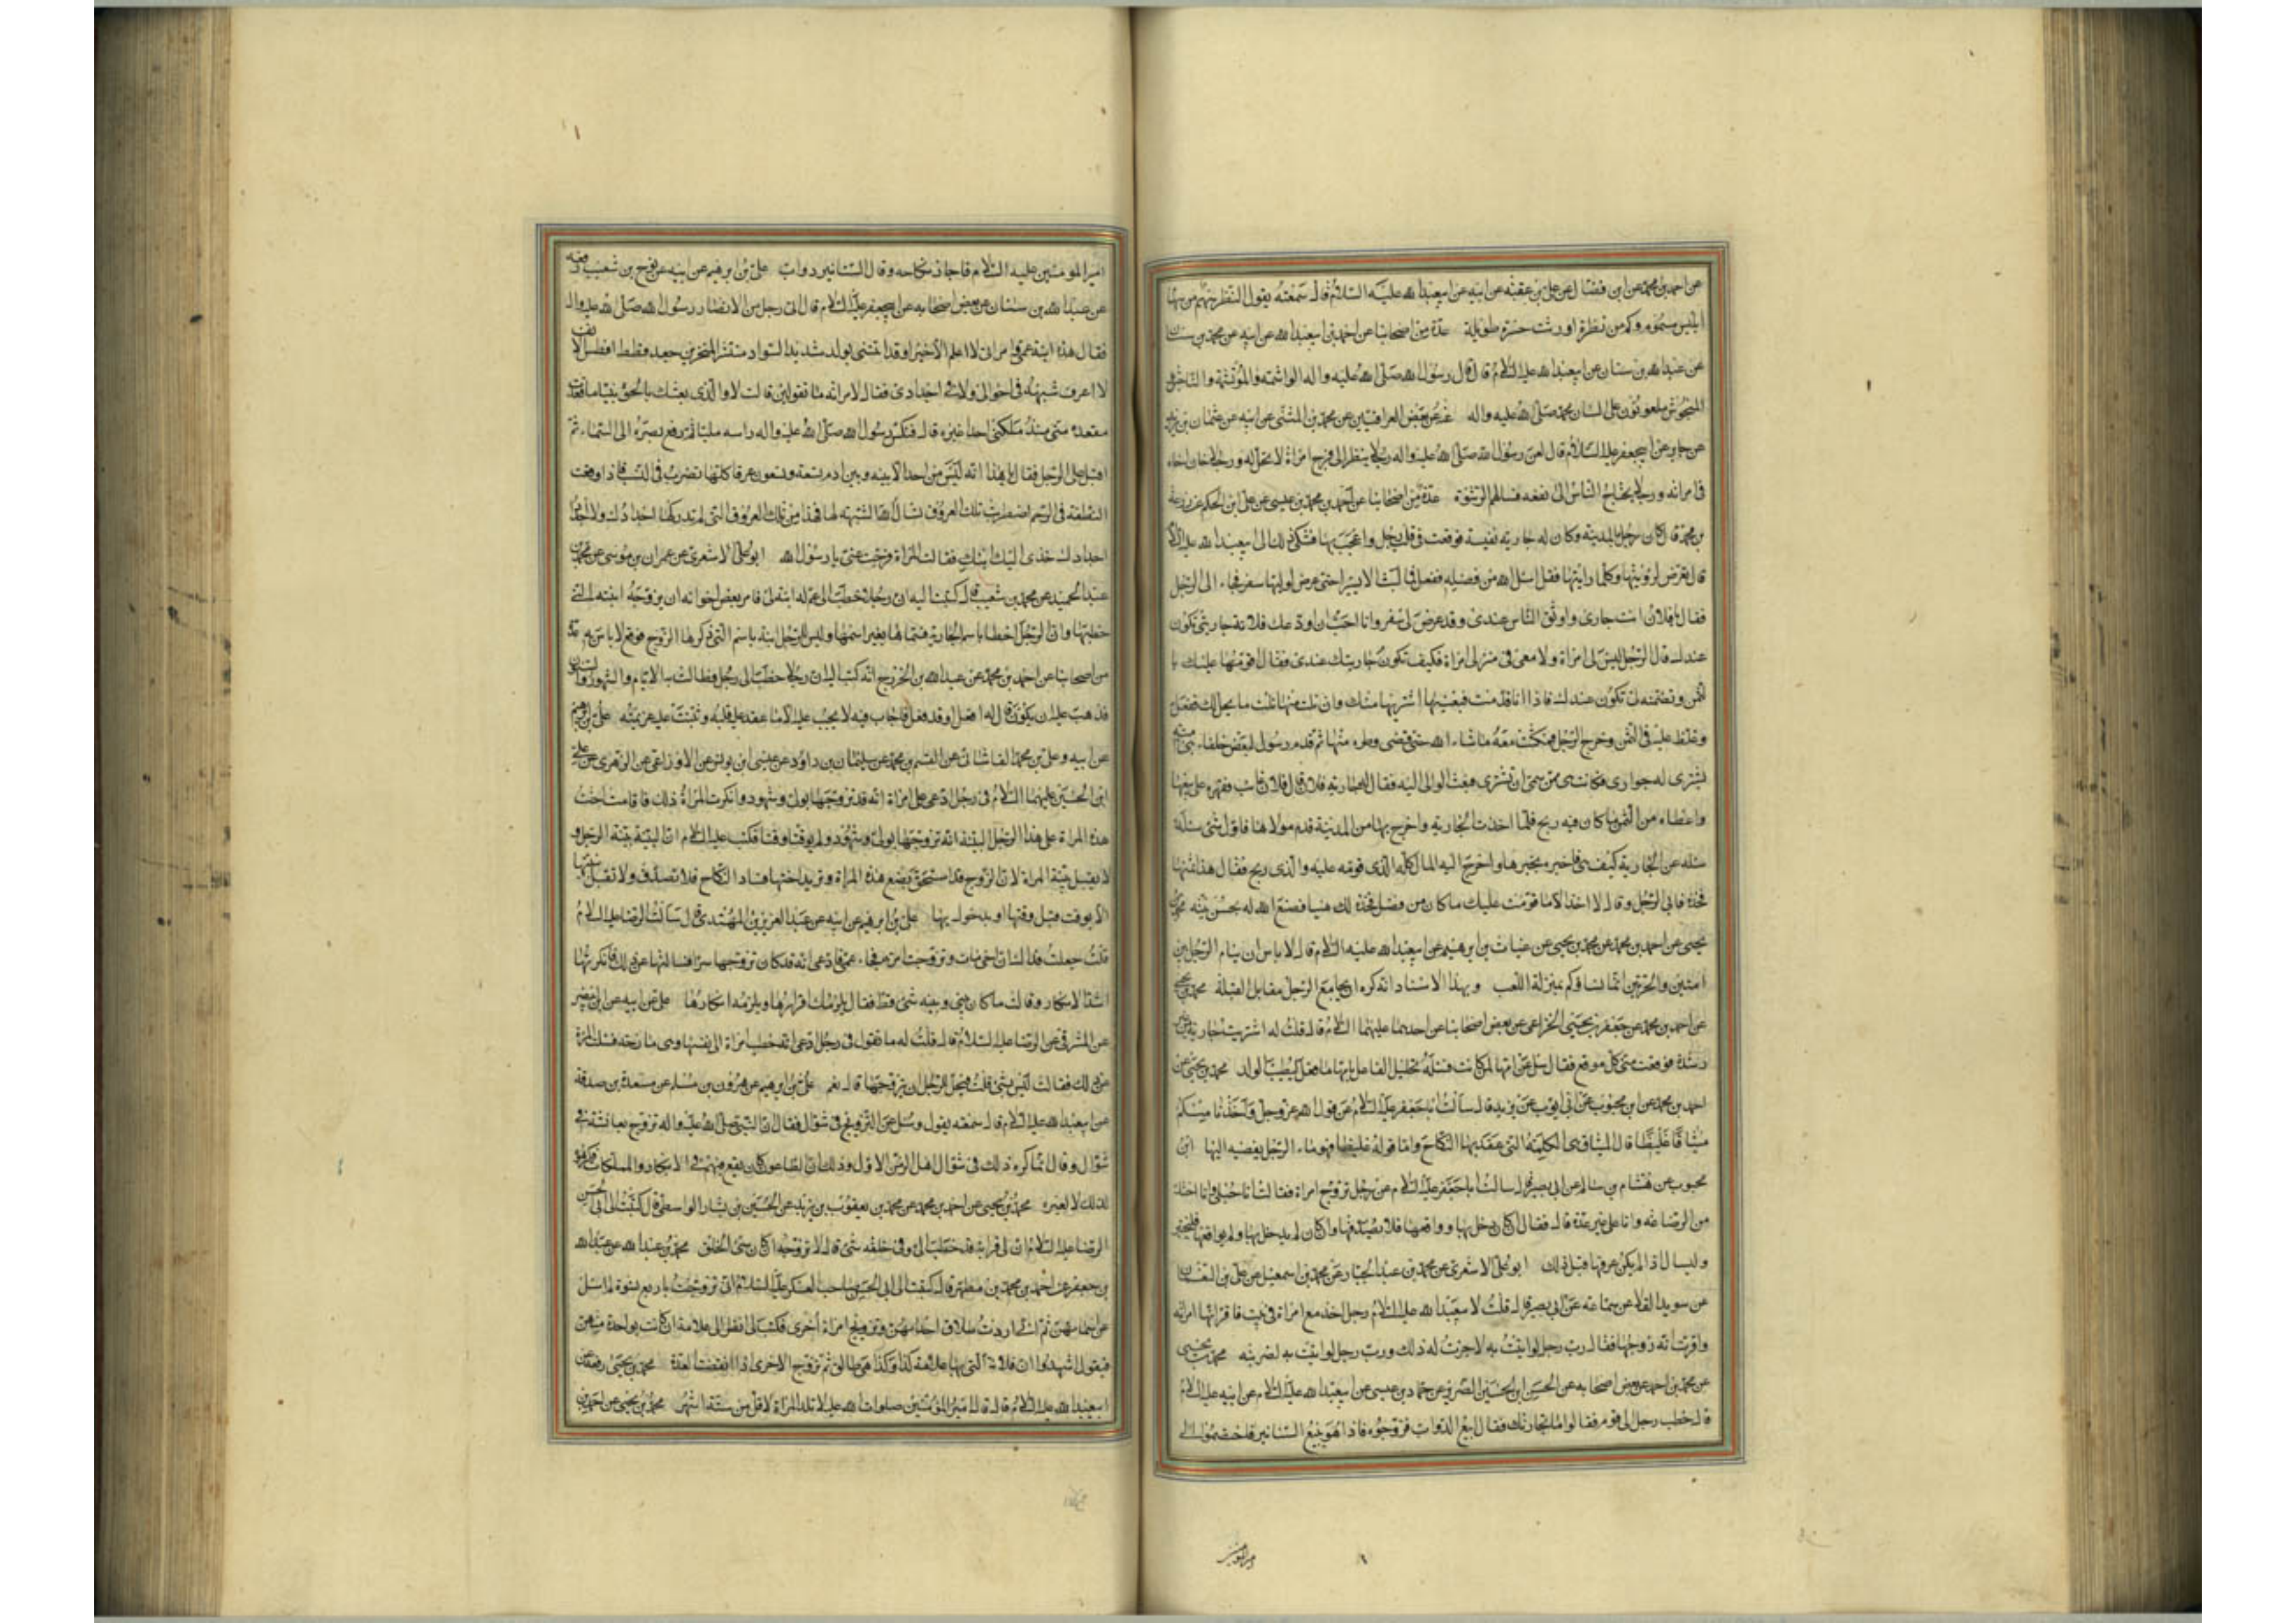 عن احمد بن محمد عن ابن فضال عن علي بن عقبة عن ابيه عن ابيعبدا لله عليه السلام قال سمعته يقول النظر سهم من سهام
ابليس مسموم وكم من نظرة اورثت حسرة طويلة عدة من اصحابنا عن احمد بن ابيعبدا لله عن ابيه عن محمد بن سنان
عن عبدا لله بن سنان عن ابيعبدا لله عليه السلام قال قال رسول الله صلى الله عليه واله الواشمة والموتشمة والناجش و
المنجوش ملعونون على لسان محمد صلى الله عليه واله عن بعض العراقيين عن محمد بن المثنى عن ابيه عن عثمان بن يزيد
عن جابر عن ابيجعفر عليه السلام قال لعن رسول الله صلى الله عليه واله رجلا ينظر الى فرج امراة لا تحل له ورجلا خان اخاه
في امراته ورجلا يحتاج الناس الى نفعه فسالهم الرشوة عدة من اصحابنا عن احمد بن محمد بن عيسى عن علي ابن الحكم عن زرعة
بن محمد قال كان رجل بالمدينة وكان له جارية نفيسة فوقعت في قلب رجل واعجب بها فشكى ذلك الى ابيعبدا لله عليه السلام
قال تعرض لرؤيتها وكلما رايتها فقل اسئل الله من فضله ففعل فما لبث الا يسيرا حتى عرض لوليها سفر فجاء الى الرجل
فقال يا فلان انت جاري واوثق الناس عندي وقد عرض لي سفر وانا احب ان اودعك فلانة جاريتي تكون
عندك قال الرجل ليس لي امراة ولا معي في منزلي امراة فكيف تكون جاريتك عندي فقال اقومها عليك با
لثمن وتضمنه لي تكون عندك فاذا انا قدمت فبعنيها اشتريها منك وان نلت منها نلت ما يحل لك ففعل
وغلظ عليه في الثمن وخرج الرجل فمكثت معه ماشاء الله حتى قضى وطره منها ثم قدم رسول لبعض خلفاء بني امية
يشترى له جواري فكانت هي ممن سمي ان تشترى فبعث الوالي اليه فقال له جارية فلان قال فلان غائب فقهره على بيعها
واعطاه من الثمن ما كان فيه ربح فلما اخذت الجارية واخرج بها من المدينة قدم مولاها فاول شئ سئله
سئله عن الجارية كيف هي فاخبره بخبرها واخرج اليه المال كله الذي قومه عليه والذي ربح فقال هذا ثمنها
فخذه فابى الرجل وقال لا اخذ الا ما قومت عليك وما كان من فضل فخذه لك هنيا فصنع الله له بحسن نيته محمد بن
يحيى عن احمد بن محمد عن محمد بن يحيى عن غياث بن ابرهيم عن ابيعبدا لله عليه السلام قال لا باس ان ينام الرجل بين
امتين والحرتين انما نساؤكم بمنزلة اللعب وبهذا الاسناد انه كره ان يجامع الرجل مقابل القبلة محمد بن يحيى
عن احمد بن محمد عن جعفر بن يحيى الخزاعي عن بعض اصحابنا عن احدهما عليهما السلام قال قلت له اشتريت جارية من غير
رشدة فوقعت مني كل موقع فقال سل عن امها لمن كانت فسله يحلل الفاعل بامها ما فعل ليطيب الولد محمد بن يحيى عن
احمد بن محمد عن ابن محبوب عن ابي ايوب عن بريد قال سالت ابا جعفر عليه السلام عن قول الله عز وجل واخذنا منكم
ميثاقا غليظا قال الميثاق هي الكلمة التي عقد بها النكاح واما قوله غليظا فهو ماء الرجل يفضيه اليها ابن
محبوب عن هشام بن سالم عن ابي بصير قال سالت ابا جعفر عليه السلام عن رجل تزوج امراة فقالت انا حبلى وانا اختك
من الرضاعة وانا على غير عدة قال فقال ان كان دخل بها وواقعها فلا يصدقها وان كان لم يدخل بها ولم يواقعها فليختبر
وليسال اذا لم يكن عرفها قبل ذلك ابو علي الاشعري عن محمد بن عبد الجبار عن محمد بن اسمعيل عن علي بن النعمان
عن سويد القلا عن سماعة عن ابي بصير قال قلت لابيعبدا لله عليه السلام رجل اخذ مع امراة في بيت فاقر انها امراته
واقرت انه زوجها فقال رب رجل لو اتيت به لاجزت له ذلك ورب رجل لو اتيت به لضربته محمد بن يحيى
عن محمد بن احمد عن بعض اصحابه عن الحسن ابن الحسين الضرير عن حماد بن عيسى عن ابيعبدا لله عليه السلام عن ابيه عليه السلام
قال خطب رجل الى قوم فقالوا ما تجارتك فقال ابيع الدواب فزوجوه فاذا هو يبيع السنانير فاختصموا الى
امير المؤمنين
امير المومنين عليه السلام فاجاز نكاحه وقال السنانير دواب علي بن ابرهيم عن ابيه عن نوح بن شعيب رفعه
عن عبدا لله بن سنان عن بعض اصحابه عن ابيجعفر عليه السلام قال اتى رجل من الانصار رسول الله صلى الله عليه واله
فقال هذه ابنة عمي وامراتي لا اعلم الا خيرا وقد اتتني بولد شديد السواد منتشر المنخرين جعد قطط افطس الانف
لا اعرف شبهه في اخوالي ولا في اجدادي فقال لامراته ما تقولين قالت لا والذي بعثك بالحق نبيا ما اقعدت
مقعده مني منذ ملكني احدا غيره قال فنكس رسول الله صلى الله عليه واله راسه مليا ثم رفع بصره الى السماء ثم
اقبل على الرجل فقال يا هذا انه ليس من احد الا بينه وبين ادم تسعة وتسعون عرقا كلها تضرب في النسب فاذا وقعت
النطفة في الرحم اضطربت تلك العروق تسال الله الشبهة لها فهذا من تلك العروق التي لم تدركها اجدادك ولا اجداد
اجدادك خذي اليك ابنك فقالت المراة فرجت عني يا رسول الله ابو علي الاشعري عن عمران بن موسى عن محمد بن
عبد الحميد عن محمد بن شعيب قال كتبت اليه ان رجلا خطب الى عم له ابنته فامر بعض اخوانه ان يزوجه ابنته التي
خطبها وان الرجل اخطا باسم الجارية فسماها بغير اسمها وليس للرجل ابنة باسم التي ذكرها الزوج فوقع لا باس به عدة
من اصحابنا عن احمد بن محمد عن عبدا لله بن الخزرج انه كتب اليه ان رجلا خطب الى رجل فطالت به الايام والشهور والسنون
فذهب عليه ان يكون قال له افعل او قد فعل فاجاب فيه لا يجب عليه الا ما عقد عليه قلبه وثبتت عليه عزيمته علي بن ابرهيم
عن ابيه وعلي بن محمد القاشاني عن القسم بن محمد عن سليمان بن داود عن عيسى ابن يونس عن الاوزاعي عن الزهري عن علي
ابن الحسين عليهما السلام في رجل ادعى على امراة انه قد تزوجها بولي وشهود وانكرت المراة ذلك فاقامت اخت
هذه المراة على هذا الرجل البينة انه تزوجها بولي وشهود ولم يوقتا وقتا فكتب عليه السلام ان البينة بينة الرجل و
لا يقبل بينة المراة لان الزوج قد استحق بضع هذه المراة وتريد اختها فساد النكاح فلا تصدق ولا تقبل بينتها
الا بوقت قبل وقتها او بدخول بها علي بن ابرهيم عن ابيه عن عبد العزيز بن المهتدي قال سالت الرضا عليه السلام
قلت جعلت فداك ان اخي مات وتزوجت امراته فجاء عمي فادعى انه قد كان تزوجها سرا فسالتها عن ذلك فانكرته
اشد الانكار وقالت ما كان بيني وبينه شئ قط فقال يلزمك اقرارها ويلزمه انكارها علي عن ابيه عن ابن ابي نصر
عن المشرقي عن الرضا عليه السلام قال قلت له ما تقول في رجل ادعى انه خطب امراة الى نفسها وهي مازحة فسئلت المراة
عن ذلك فقالت نعم ليس بشئ قلت فيحل للرجل ان يتزوجها قال نعم علي بن ابرهيم عن هرون بن مسلم عن مسعدة بن صدقة
عن ابيعبدا لله عليه السلام قال سمعته يقول وسئل عن التزويج في شوال فقال ان النبي صلى الله عليه واله تزوج بعائشة في
شوال وقال انما كره ذلك في شوال اهل الزمن الاول وذلك ان الطاعون كان يقع فيهم في الابكار والمملكات فكرهوه
لذلك لا لغيره محمد بن يحيى عن احمد بن محمد عن محمد بن يعقوب بن يزيد عن الحسين بن بشار الواسطي قال كتبت الى ابي الحسن
الرضا عليه السلام ان لي قرابة قد خطب الي وفي خلقه شئ قال لا تزوجه ان كان سئ الخلق محمد بن عبدا لله عن عبدا لله
بن جعفر عن احمد بن محمد بن مطهر قال كتبت الى ابي الحسن صاحب العسكر عليه السلام اني تزوجت باربع نسوة لم اسئل
عن اسمائهن ثم اني اردت طلاق احدهن وتزويج امراة اخرى فكتب انظر الى علامة ان كانت بواحدة منهن
فيقول اشهدوا ان فلانة التي بها علامة كذا وكذا هي طالق ثم تزوج الاخرى اذا انقضت العدة محمد بن يحيى رفعه عن
ابيعبدا لله عليه السلام قال قال امير المؤمنين صلوات الله عليه لا تلد المراة لاقل من ستة اشهر محمد بن يحيى عن احمد بن